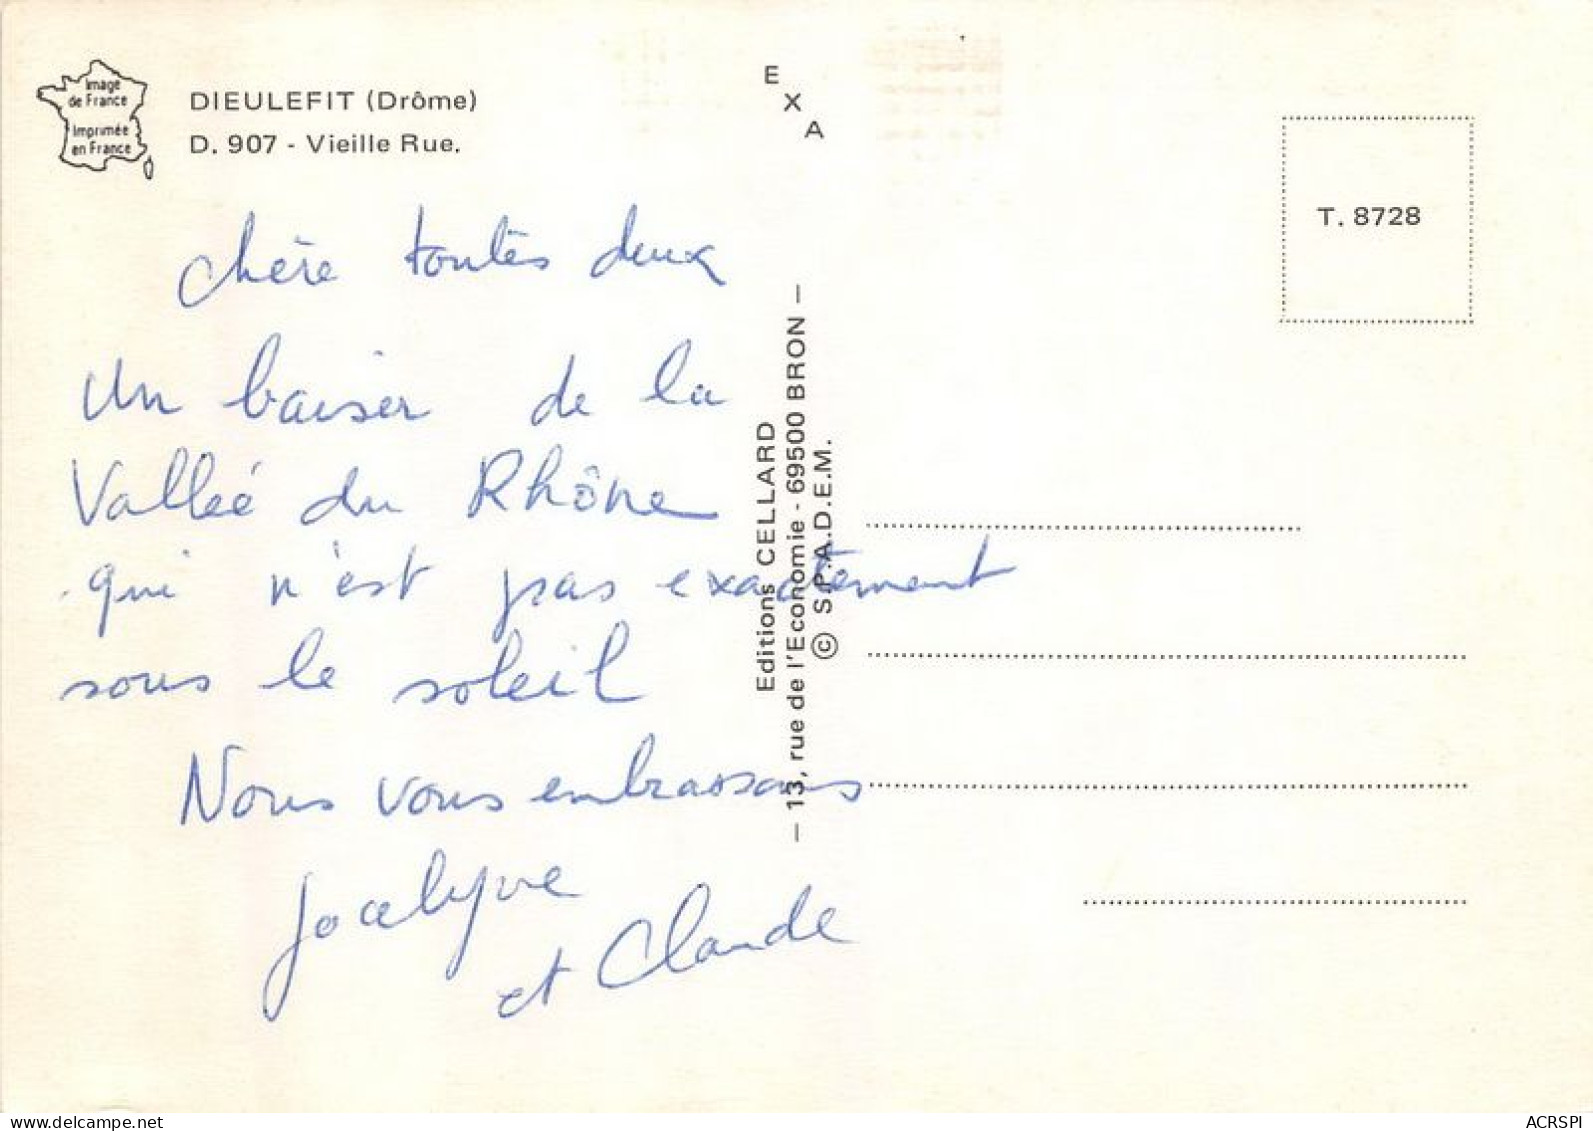 Image
de France
Imprimée
en France
DIEULEFIT (Drôme)
D. 907 - Vieille Rue.
E
X
A
T. 8728
chère toutes deux
Un baiser de la
Vallée du Rhône
qui n'est pas exactement
sous le soleil
Nous vous embrassons
Jocelyne
et Claude
Editions CELLARD
— 13, rue de l'Economie - 69500 BRON —
© S.P.A.D.E.M.
www.delcampe.net
ACRSPI